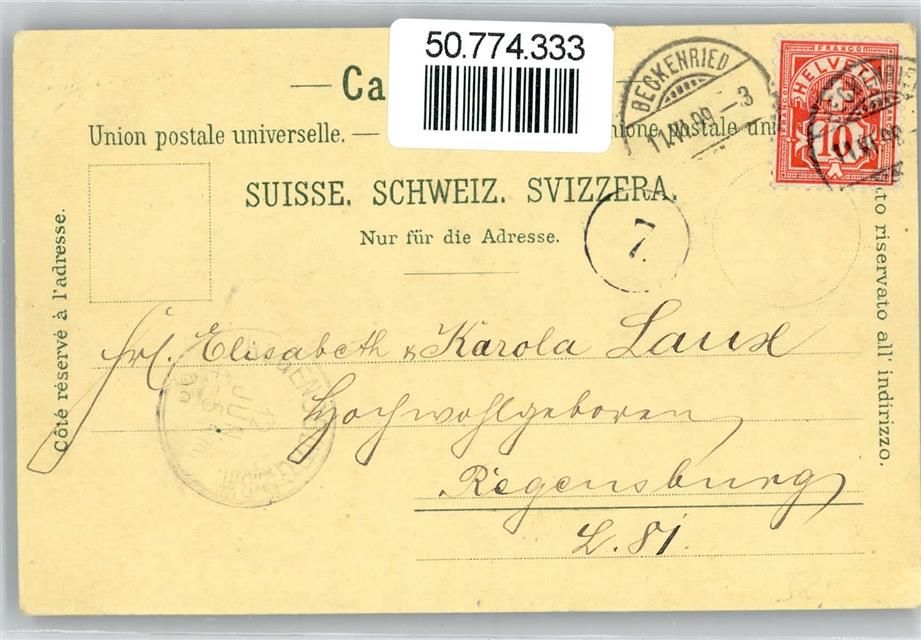 50.774.333
Ca
Union postale universelle. — ione postale uni
SUISSE. SCHWEIZ. SVIZZERA.
Nur für die Adresse.
Côté réservé à l'adresse.
to riservato all' indirizzo.
BECKENRIED
11.VI.99 – 3
FRANCO
HELVETIA
10
11.VI.99
7.
Frl. Elisabeth & Karola Laux
Hochwohlgeboren
Regensburg
L. 81.
12 JUN